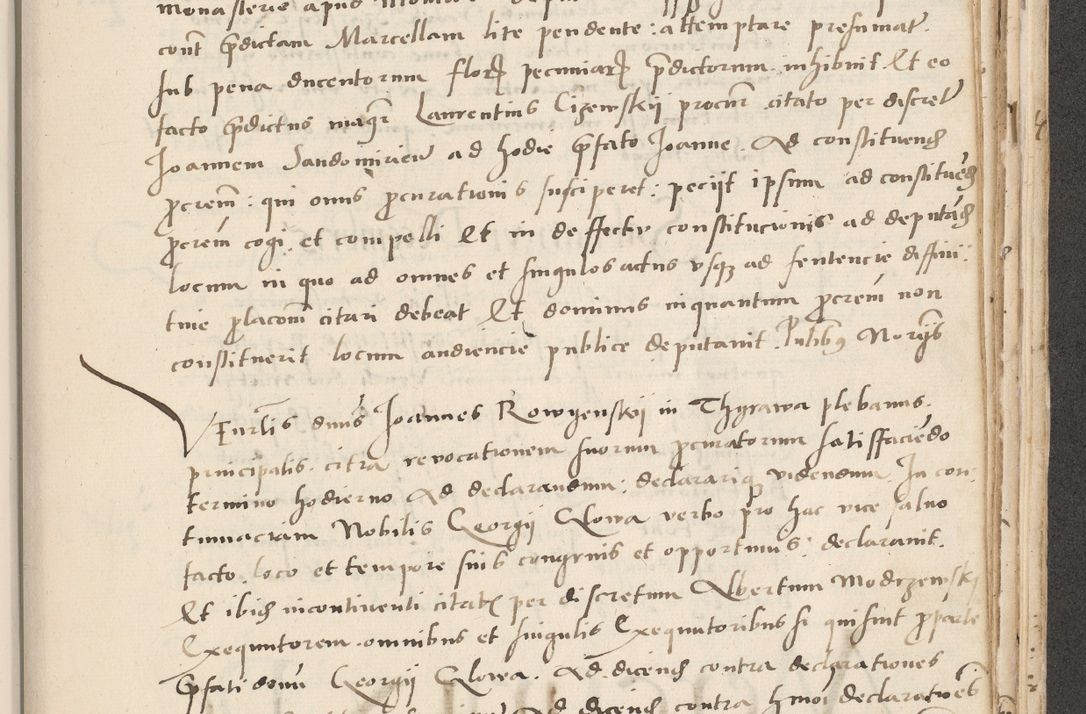 monasterie apud
cont p̄dictam Marcellam lite pendente : attemptare presumat.
sub pena ducentorum flor pecuniar p̄dictorum inhibuit. Et eo
facto p̄dictus magr Laurentius Cizewskij procur citato per discret
Joannem Sandomirien ad hodie p̄fato Joanne. Ad constituend
procrem̄ : qui onus procurationis susciperet : petijt ipsum ad constituend
procrem̄ cogi. et compelli Et in deffectu constitucionis ad deputand
locum in quo ad omnes et singulos actus vsq ad sententie diffini:
tiue prolacom̄ citari debeat Et dominus inquantum procrem̄ non
constituerit locum audiencie publice deputauit. Pntibus Norijs
Venrlis dn̄us Joannes Rowgenskij in Thyrawa plebanus.
principalis. citra reuocationem suorum procuratorum satisffaciendo
termino hodierno Ad declarandum : declarariq videndum. In con
tumaciam Nobilis Georgij Glowa verbo pro hac vice saluo
facto. loco et tempore suis congruis et opportunis : declarauit.
Et ibid incontinenti citatj per discretum Albertum Modrzewskj
Exequutorem omnibus et singulis Exequutoribus si qui sint pro parte
p̄fati domi Georgij Glowa. Ad dicend contra declarationes
Ad dicend contra hmoi declarationes